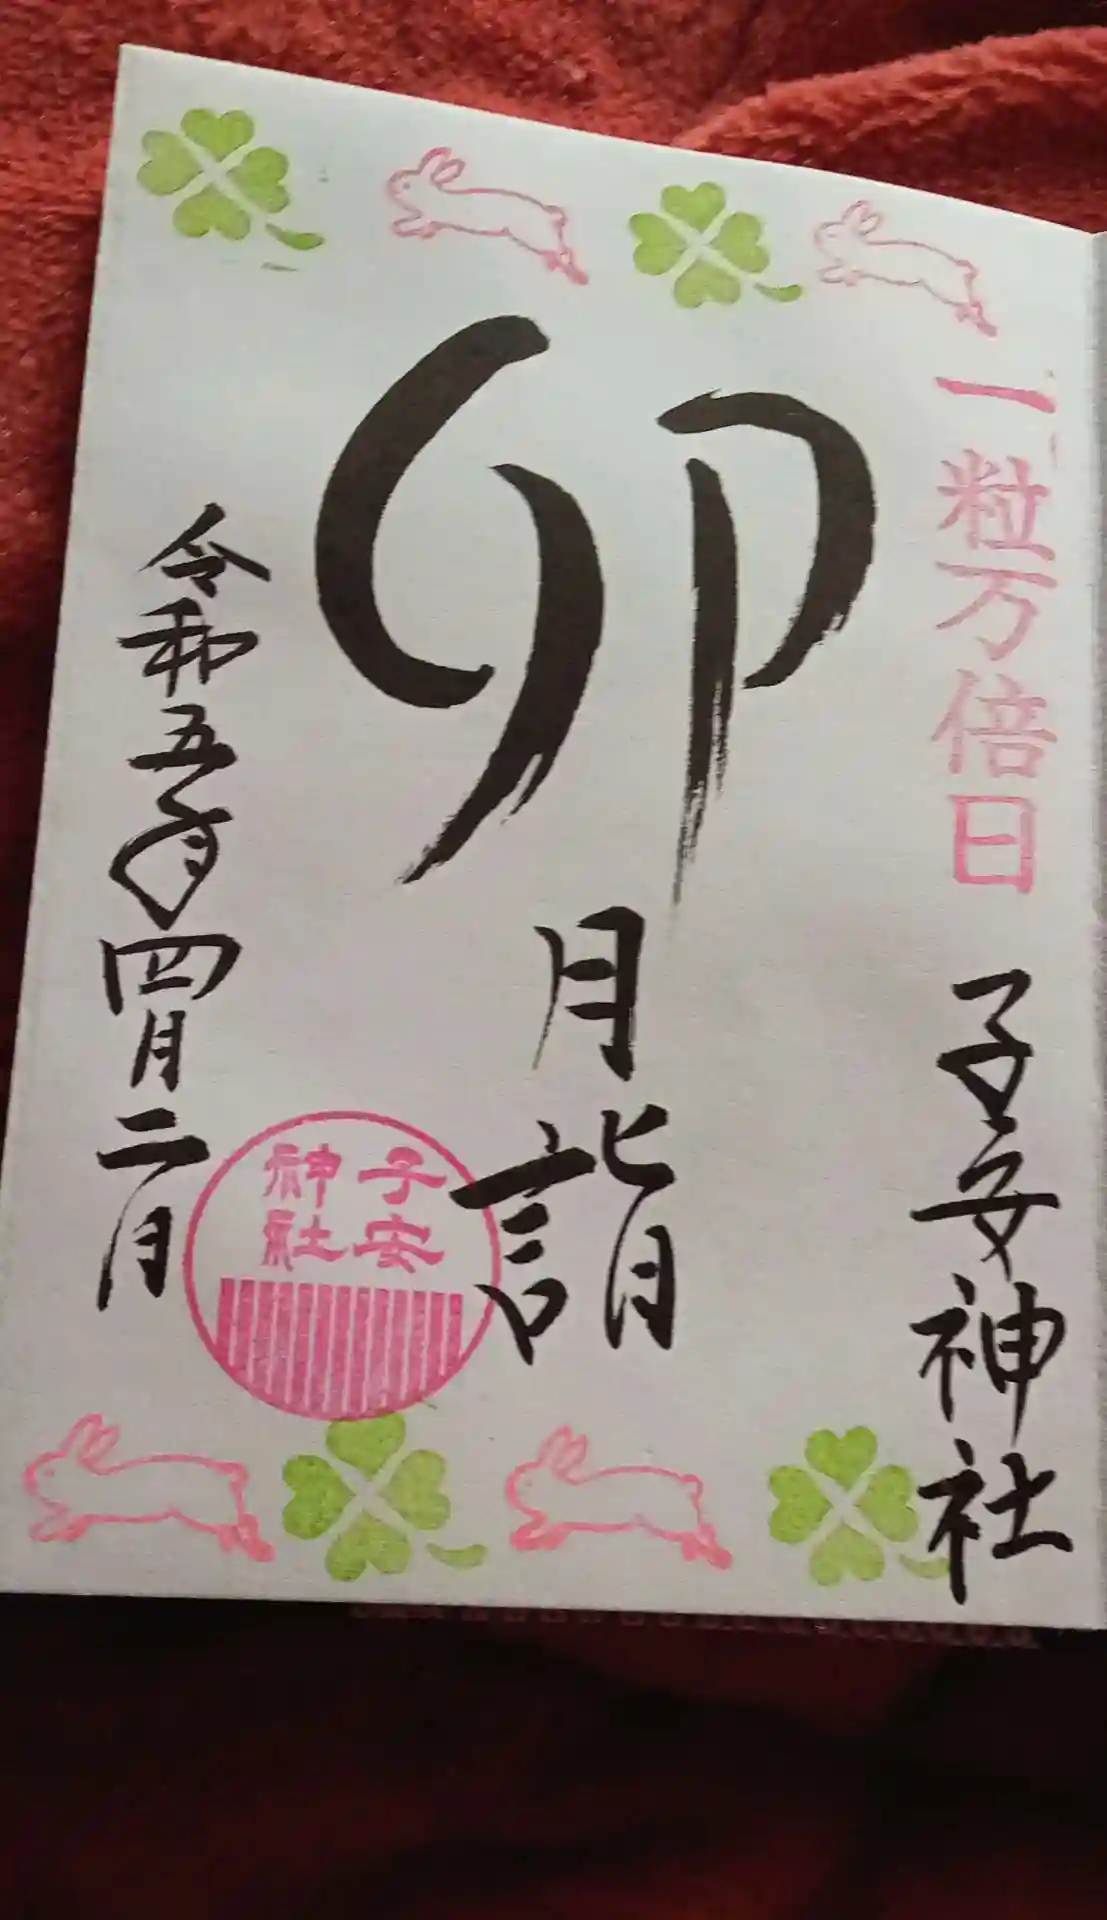 一粒万倍日
子安神社
卯
月詣
子安
神社
令和五年四月二日